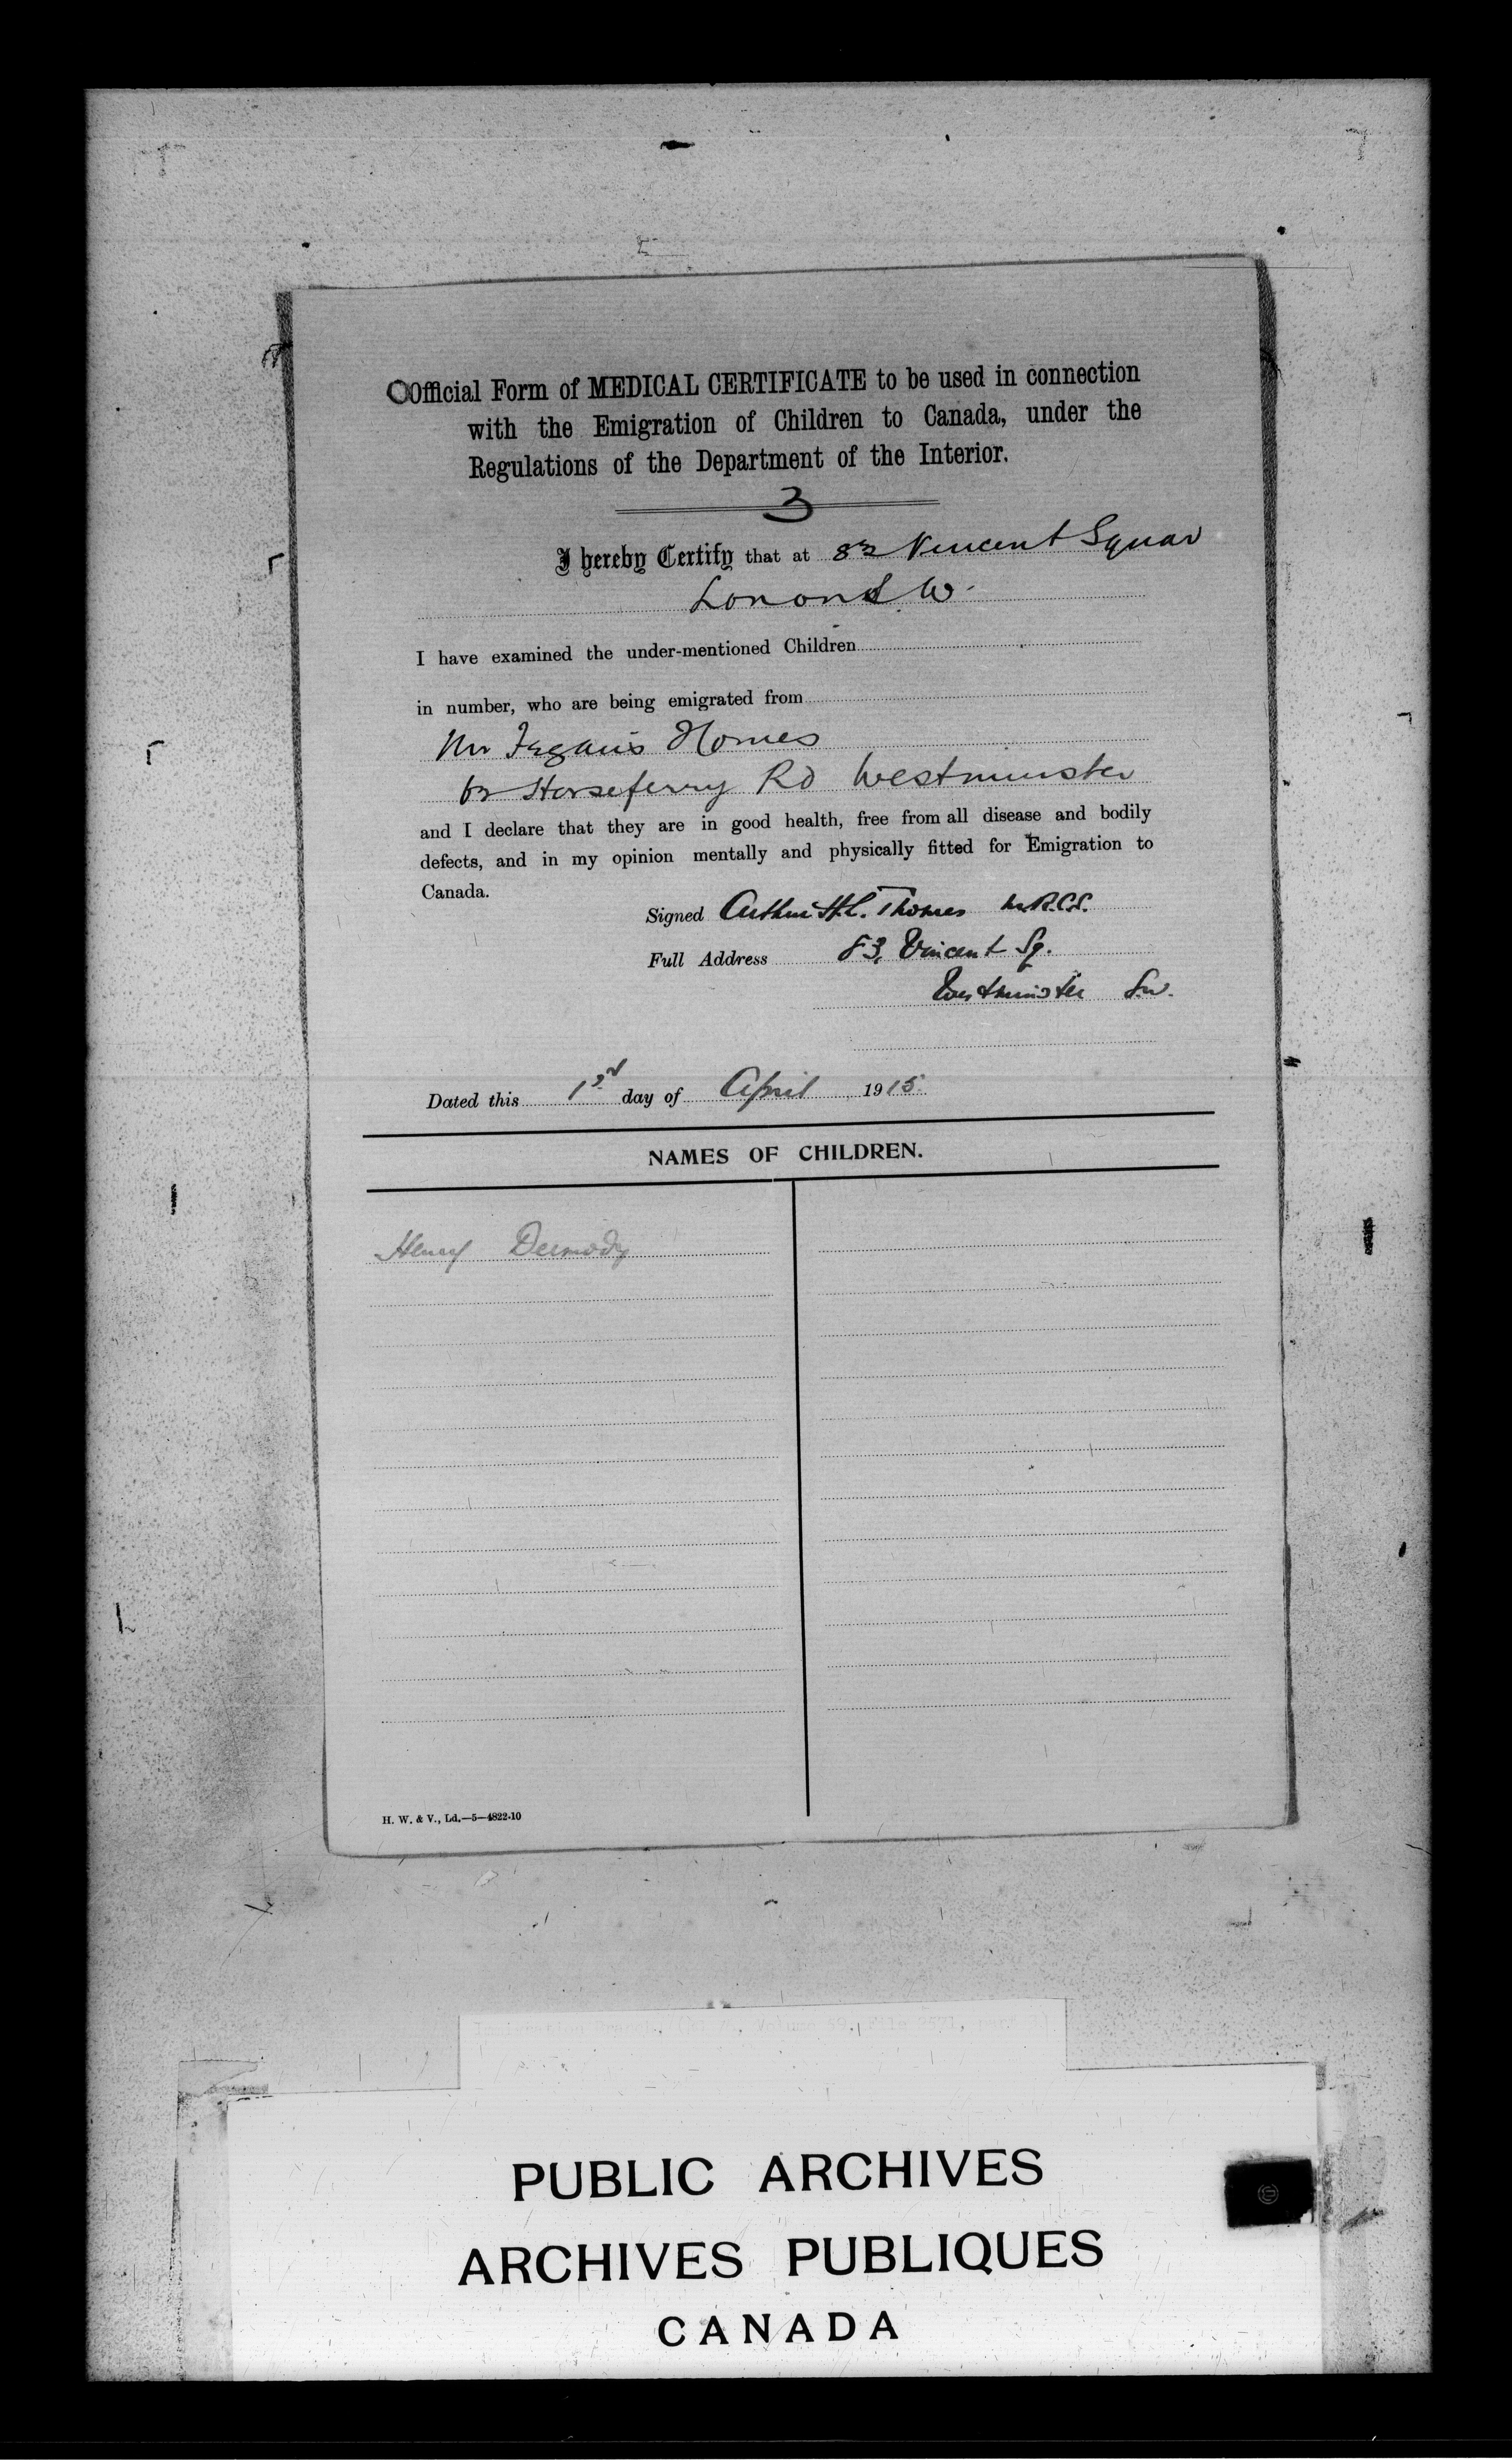 Official Form of MEDICAL CERTIFICATE to be used in connection
with the Emigration of Children to Canada, under the
Regulations of the Department of the Interior.
3
I hereby Certify that at 83 Vincent Squar
Lonon S.W.
I have examined the under-mentioned Children
in number, who are being emigrated from
Mr Fegan's Homes
62 Horseferry Rd Westminster
and I declare that they are in good health, free from all disease and bodily
defects, and in my opinion mentally and physically fitted for Emigration to
Canada.
Signed Arthur H.C. Thomas M.R.C.S.
Full Address 83, Vincent Sq.
Westminster S.W.
Dated this day of April 1915.
NAMES OF CHILDREN.
Henry Dermody
H. W. & V., Ld.—5—4822-10
PUBLIC ARCHIVES
ARCHIVES PUBLIQUES
CANADA